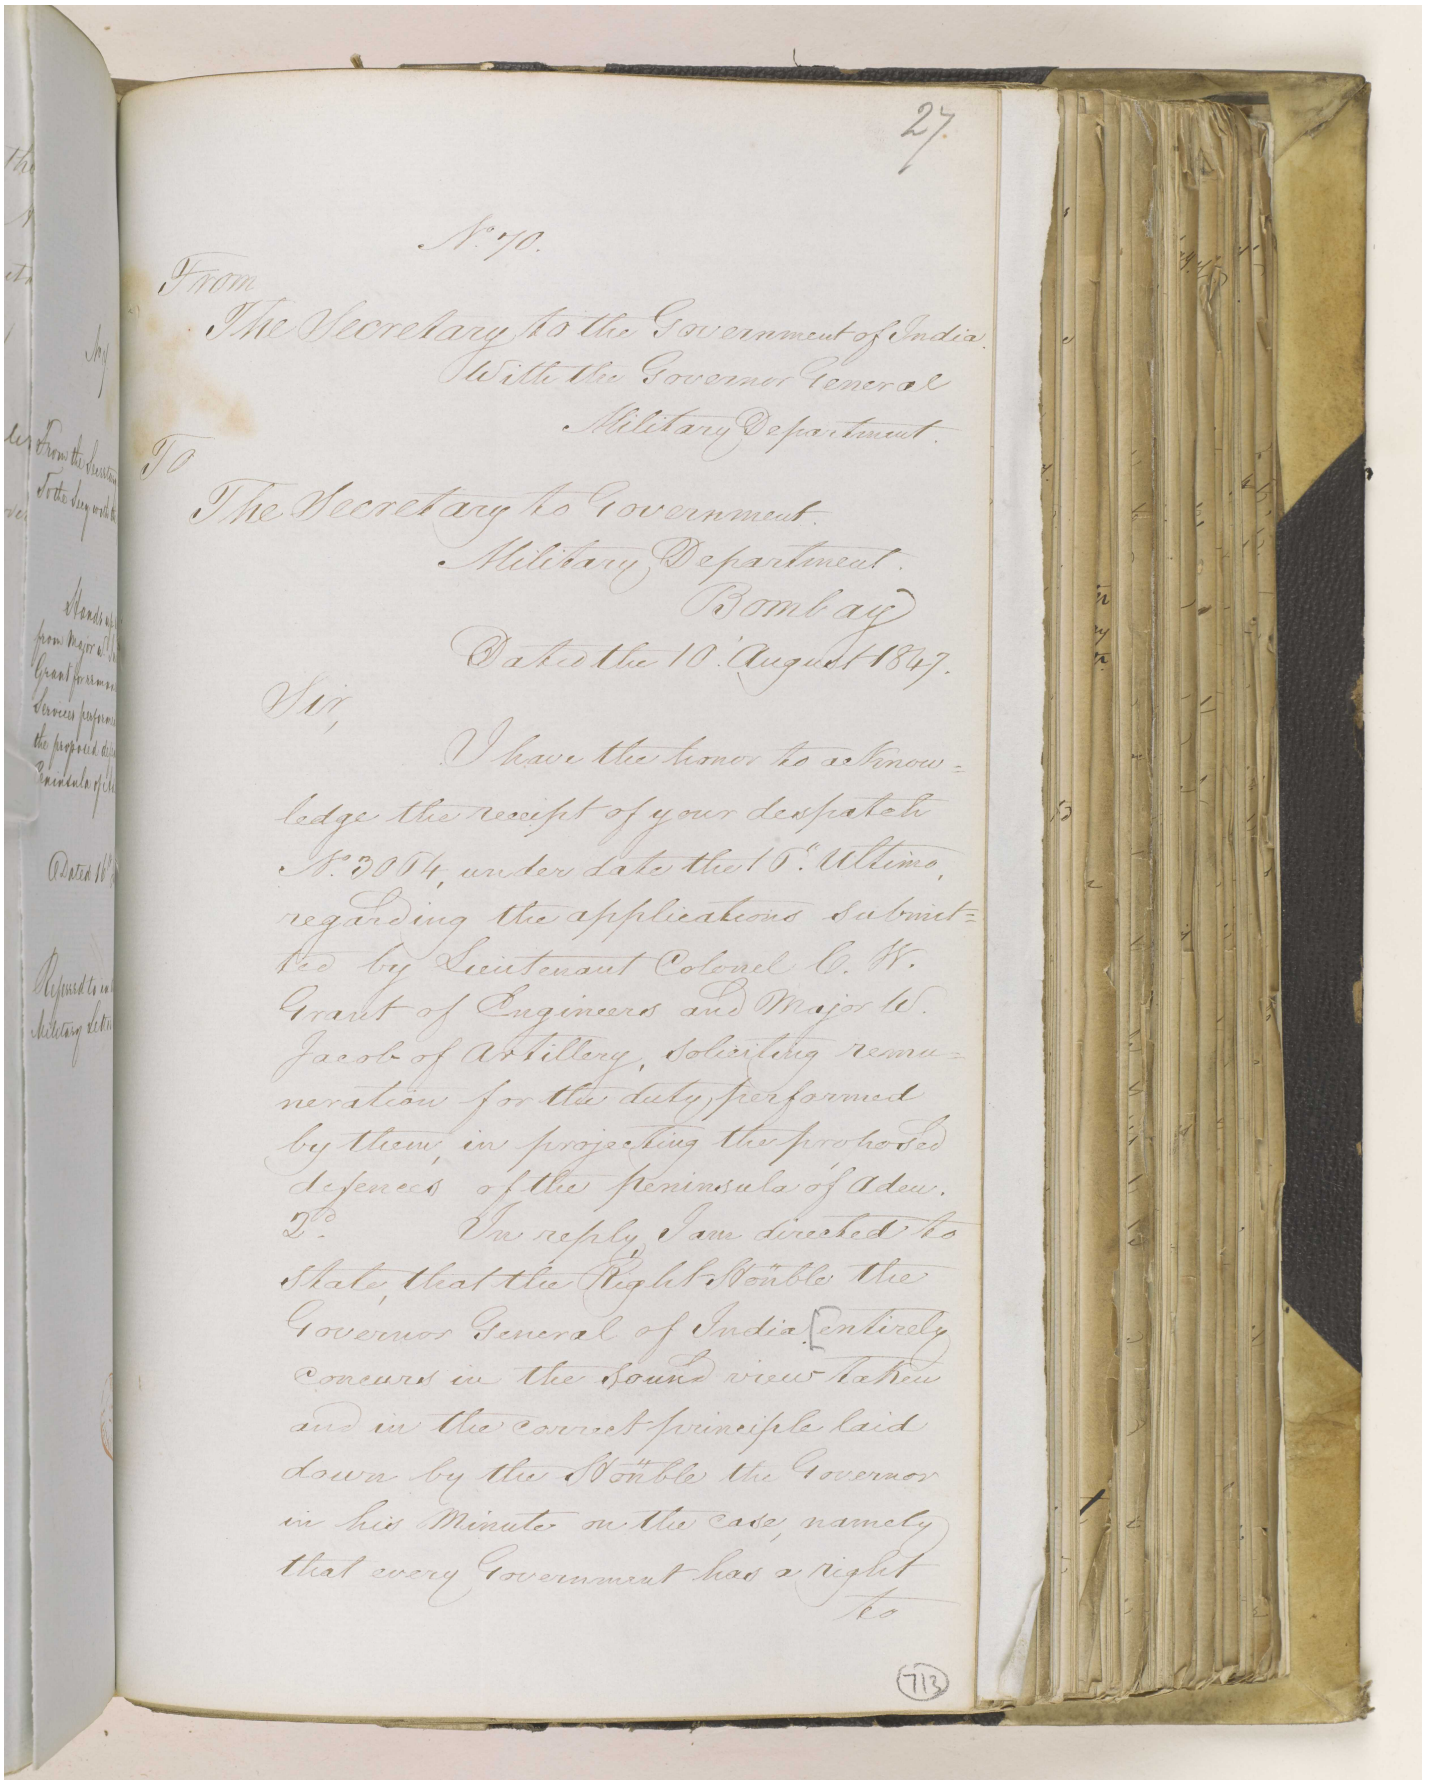 27.
No. 70.
From
The Secretary to the Government of India.
With the Governor General
Military Department.
To
The Secretary to Government.
Military Department.
Bombay
Dated the 10th. August 1847.
Sir,
I have the honor to acknow=
ledge the receipt of your despatch
No. 3064, under date the 16th. Ultimo,
regarding the applications submit=
ted by Lieutenant Colonel C. W.
Grant of Engineers and Major W.
Jacob of Artillery, soliciting remu=
neration for the duty performed
by them, in projecting the proposed
defences of the peninsula of Aden.
2d. In reply, I am directed to
state, that the Right Honble the
Governor General of India [entirely
concurs in the sound view taken
and in the correct principle laid
down by the Honble the Governor
in his Minute on the case, namely
that every Government has a right
to
713
From the
To the Secy with the
from Major
Grant for
Services
the proposed
Peninsula of
Dated 16th
Military